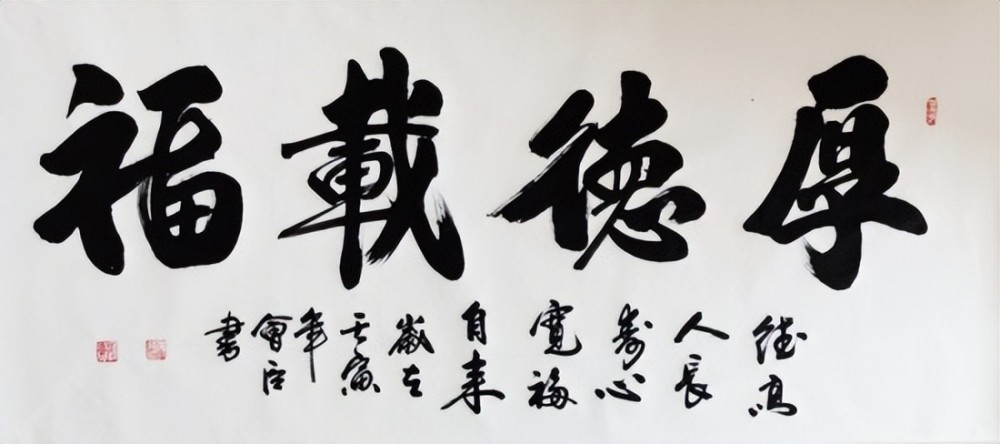 厚德載福
德高
人長
壽心
寬福
自来
歲在
壬寅
年
會
書